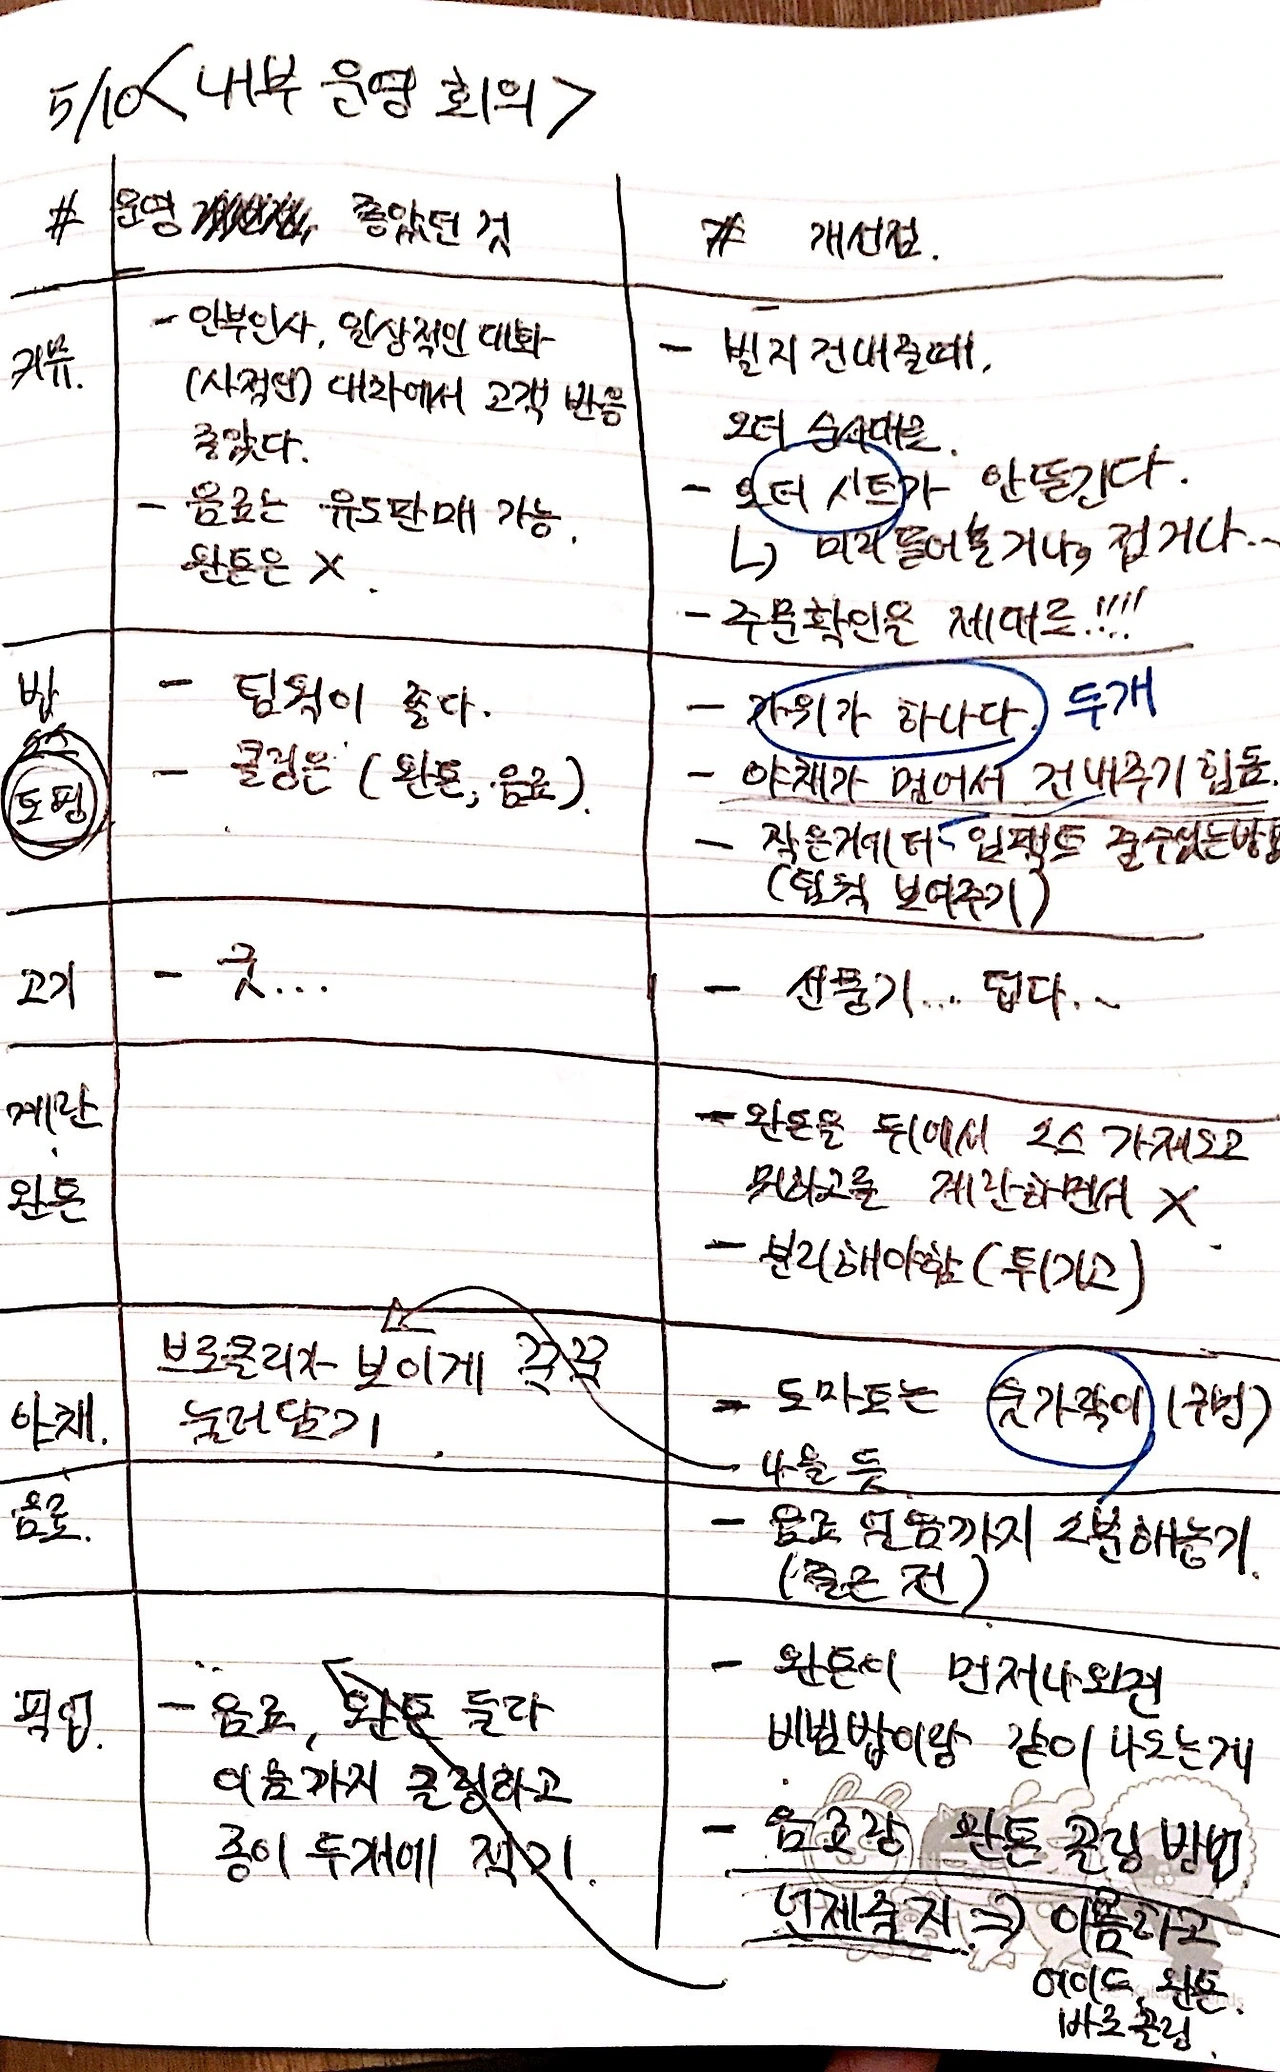 5/10 < 내부 운영 회의 >
# 운영 좋았던 것
# 개선점.
커뮤.
- 안부인사, 일상적인 대화
(사적인) 대화에서 고객 반응
좋았다.
- 음료는 유도판매 가능.
완톤은 X.
- 빌지 건내줄때,
오더 순서대로.
- 오더 시트가 안뜯긴다.
↳ 미리 뜯어놓거나, 접거나...
- 주문확인을 제대로!!!!
밥
소스
토핑
- 팀웍이 좋다.
- 콜링은 (완톤, 음료).
- 가위가 하나다. 두개
- 야채가 멀어서 건내주기 힘듦.
- 작은거에터 임팩트 줄수있는방법
(팀웍 보여주기)
고기
- 굿...
- 선풍기... 덥다..~
계란
완톤
- 완톤을 뒤에서 소스 가져오고
뭐하고를 계란하면서 X
- 분리해야함 (튀기고)
야채.
브로콜리가 보이게 꾹꾹
눌러담기.
- 도마토는 숟가락이 (구멍)
나을 듯.
음료.
- 음료 얼음까지 소분해놓기.
(출근 전)
픽업.
- 음료, 완톤 둘다
이름까지 콜링하고
종이 두개에 적기.
- 완톤이 먼저나오면
비빔밥이랑 같이 나오는게
- 음료랑 완톤 콜링 방법
언제줄지 => 이름하고
에이드, 완톤.
바로콜링.